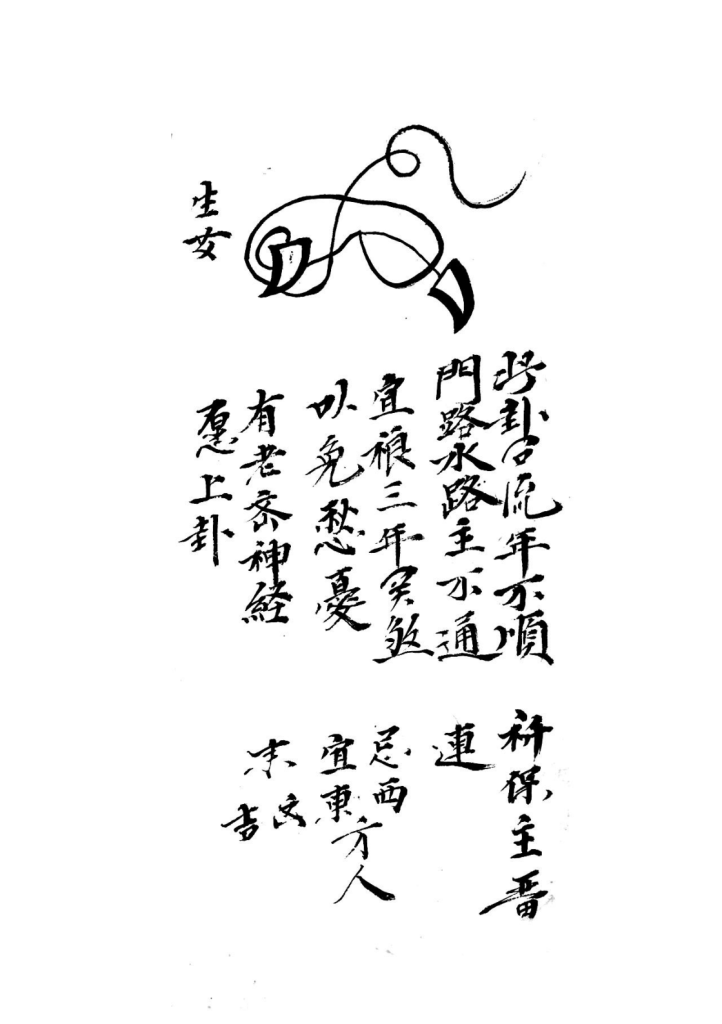 此卦曰流年不順
門路水路主不通
宜禳三年実煞
以免愁憂
有老密神経
愿上卦
祈保主晋
連
忌西
宜東方人
末文
吉
生女